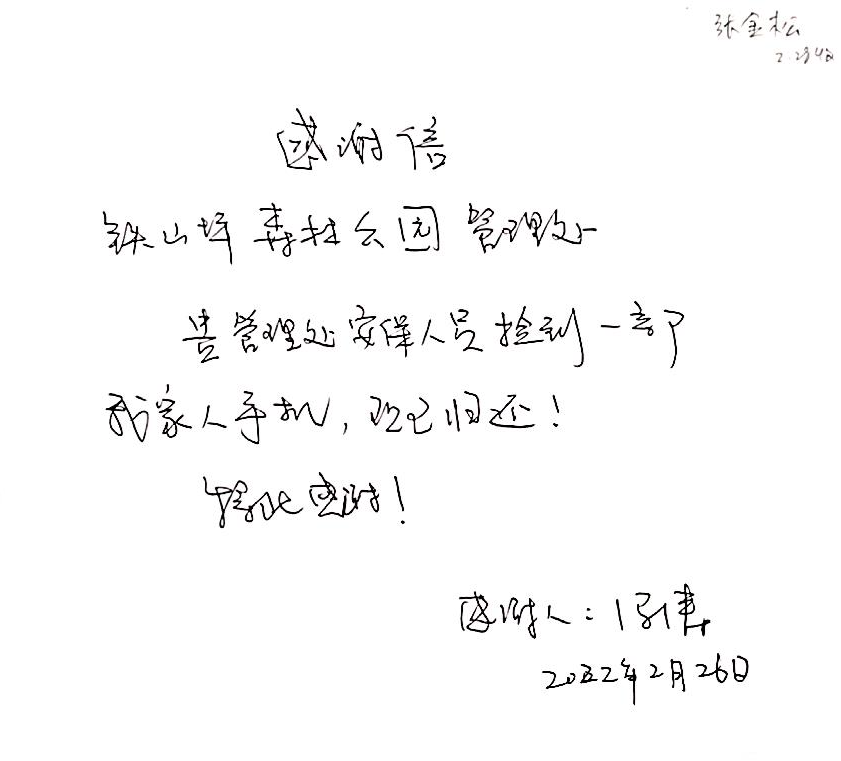 张金松
2.28收
感谢信
铁山坪森林公园管理处
贵管理处安保人员捡到一部
我家人手机，现已归还！
特此感谢！
感谢人：
2022年2月26日